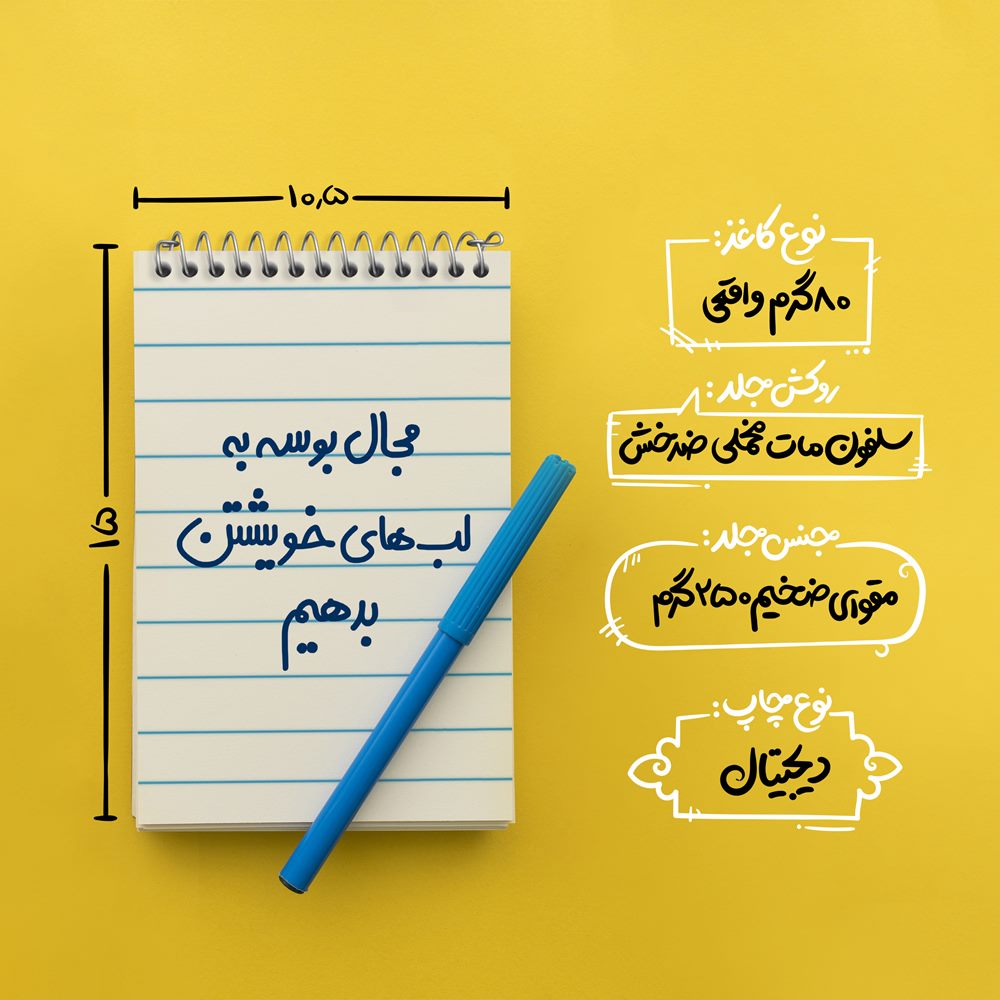 ۱۰٫۵
۱۵
مجال بوسه به
لب‌های خویشتن
بدهیم
نوع کاغذ:
۸۰ گرم واقعی
روکش جلد:
سلفون مات مخملی ضدخش
جنس جلد:
مقوای ضخیم ۲۵۰ گرم
نوع چاپ:
دیجیتال